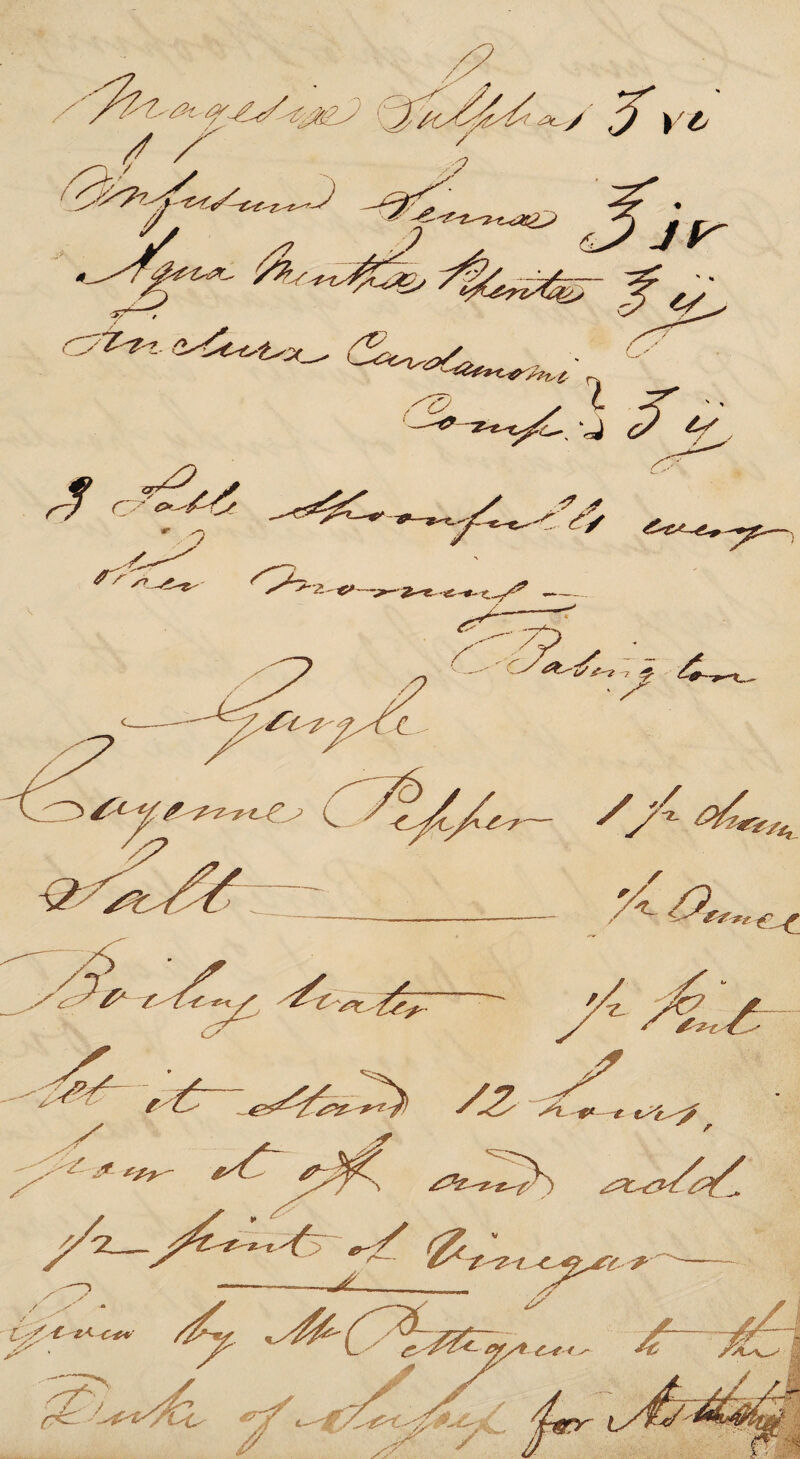 Magesiæ Sulphas ʒ vi
Infusum Sennæ ℥ iv
Aqua Menthæ Piperitæ ℥ ij
Tinctura Cardamomi }
Comp: } ʒ ij
3 Table Spoonfulls every
other Morning —
Babington
Gargle
Cayenne Pepper 1 1/2 dram
Salt — 1/2 Ounce
Boiling Water — 1/2 Pint
let it stand 12 hours,
pour it off and add
1/2 pint of Vinegar
Given by Mr Pettigrew to the
Duke of Sussex for